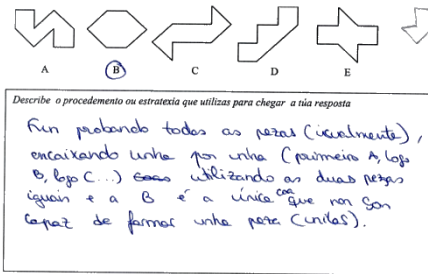 A B C D E
Describe o procedemento ou estratexia que utilizas para chegar a túa resposta
Fun probando todas as pezas (visualmente),
encaixando unha por unha (primeiro A, logo
B, logo C...) utilizando as duas pezas
iguais e a B é a única coa que non son
capaz de formar unha peza (unilas).